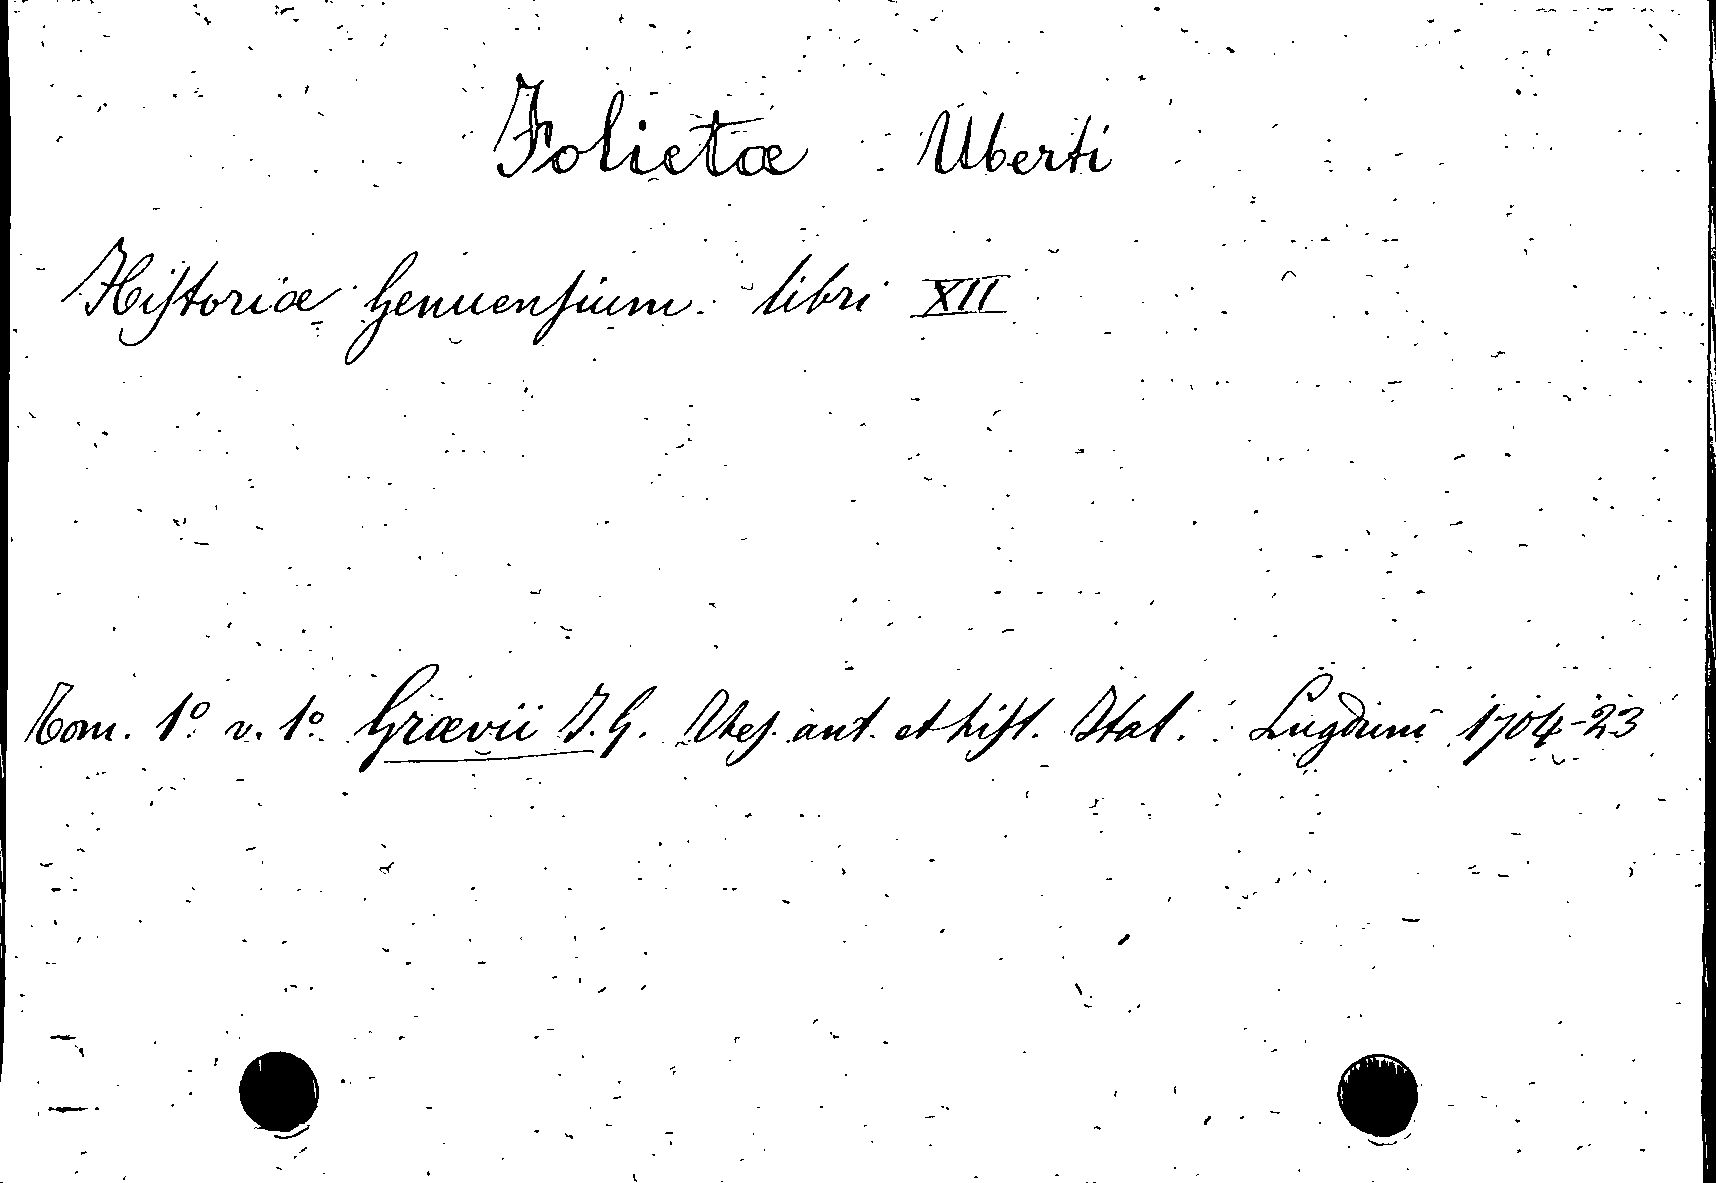 Folietæ Uberti
Hiſtoriæ Genuenſium libri XII
Tom. 1º v. 1º Grævii J. G. Theſ. ant. et hiſt. Ital. Lugduni 1704-23